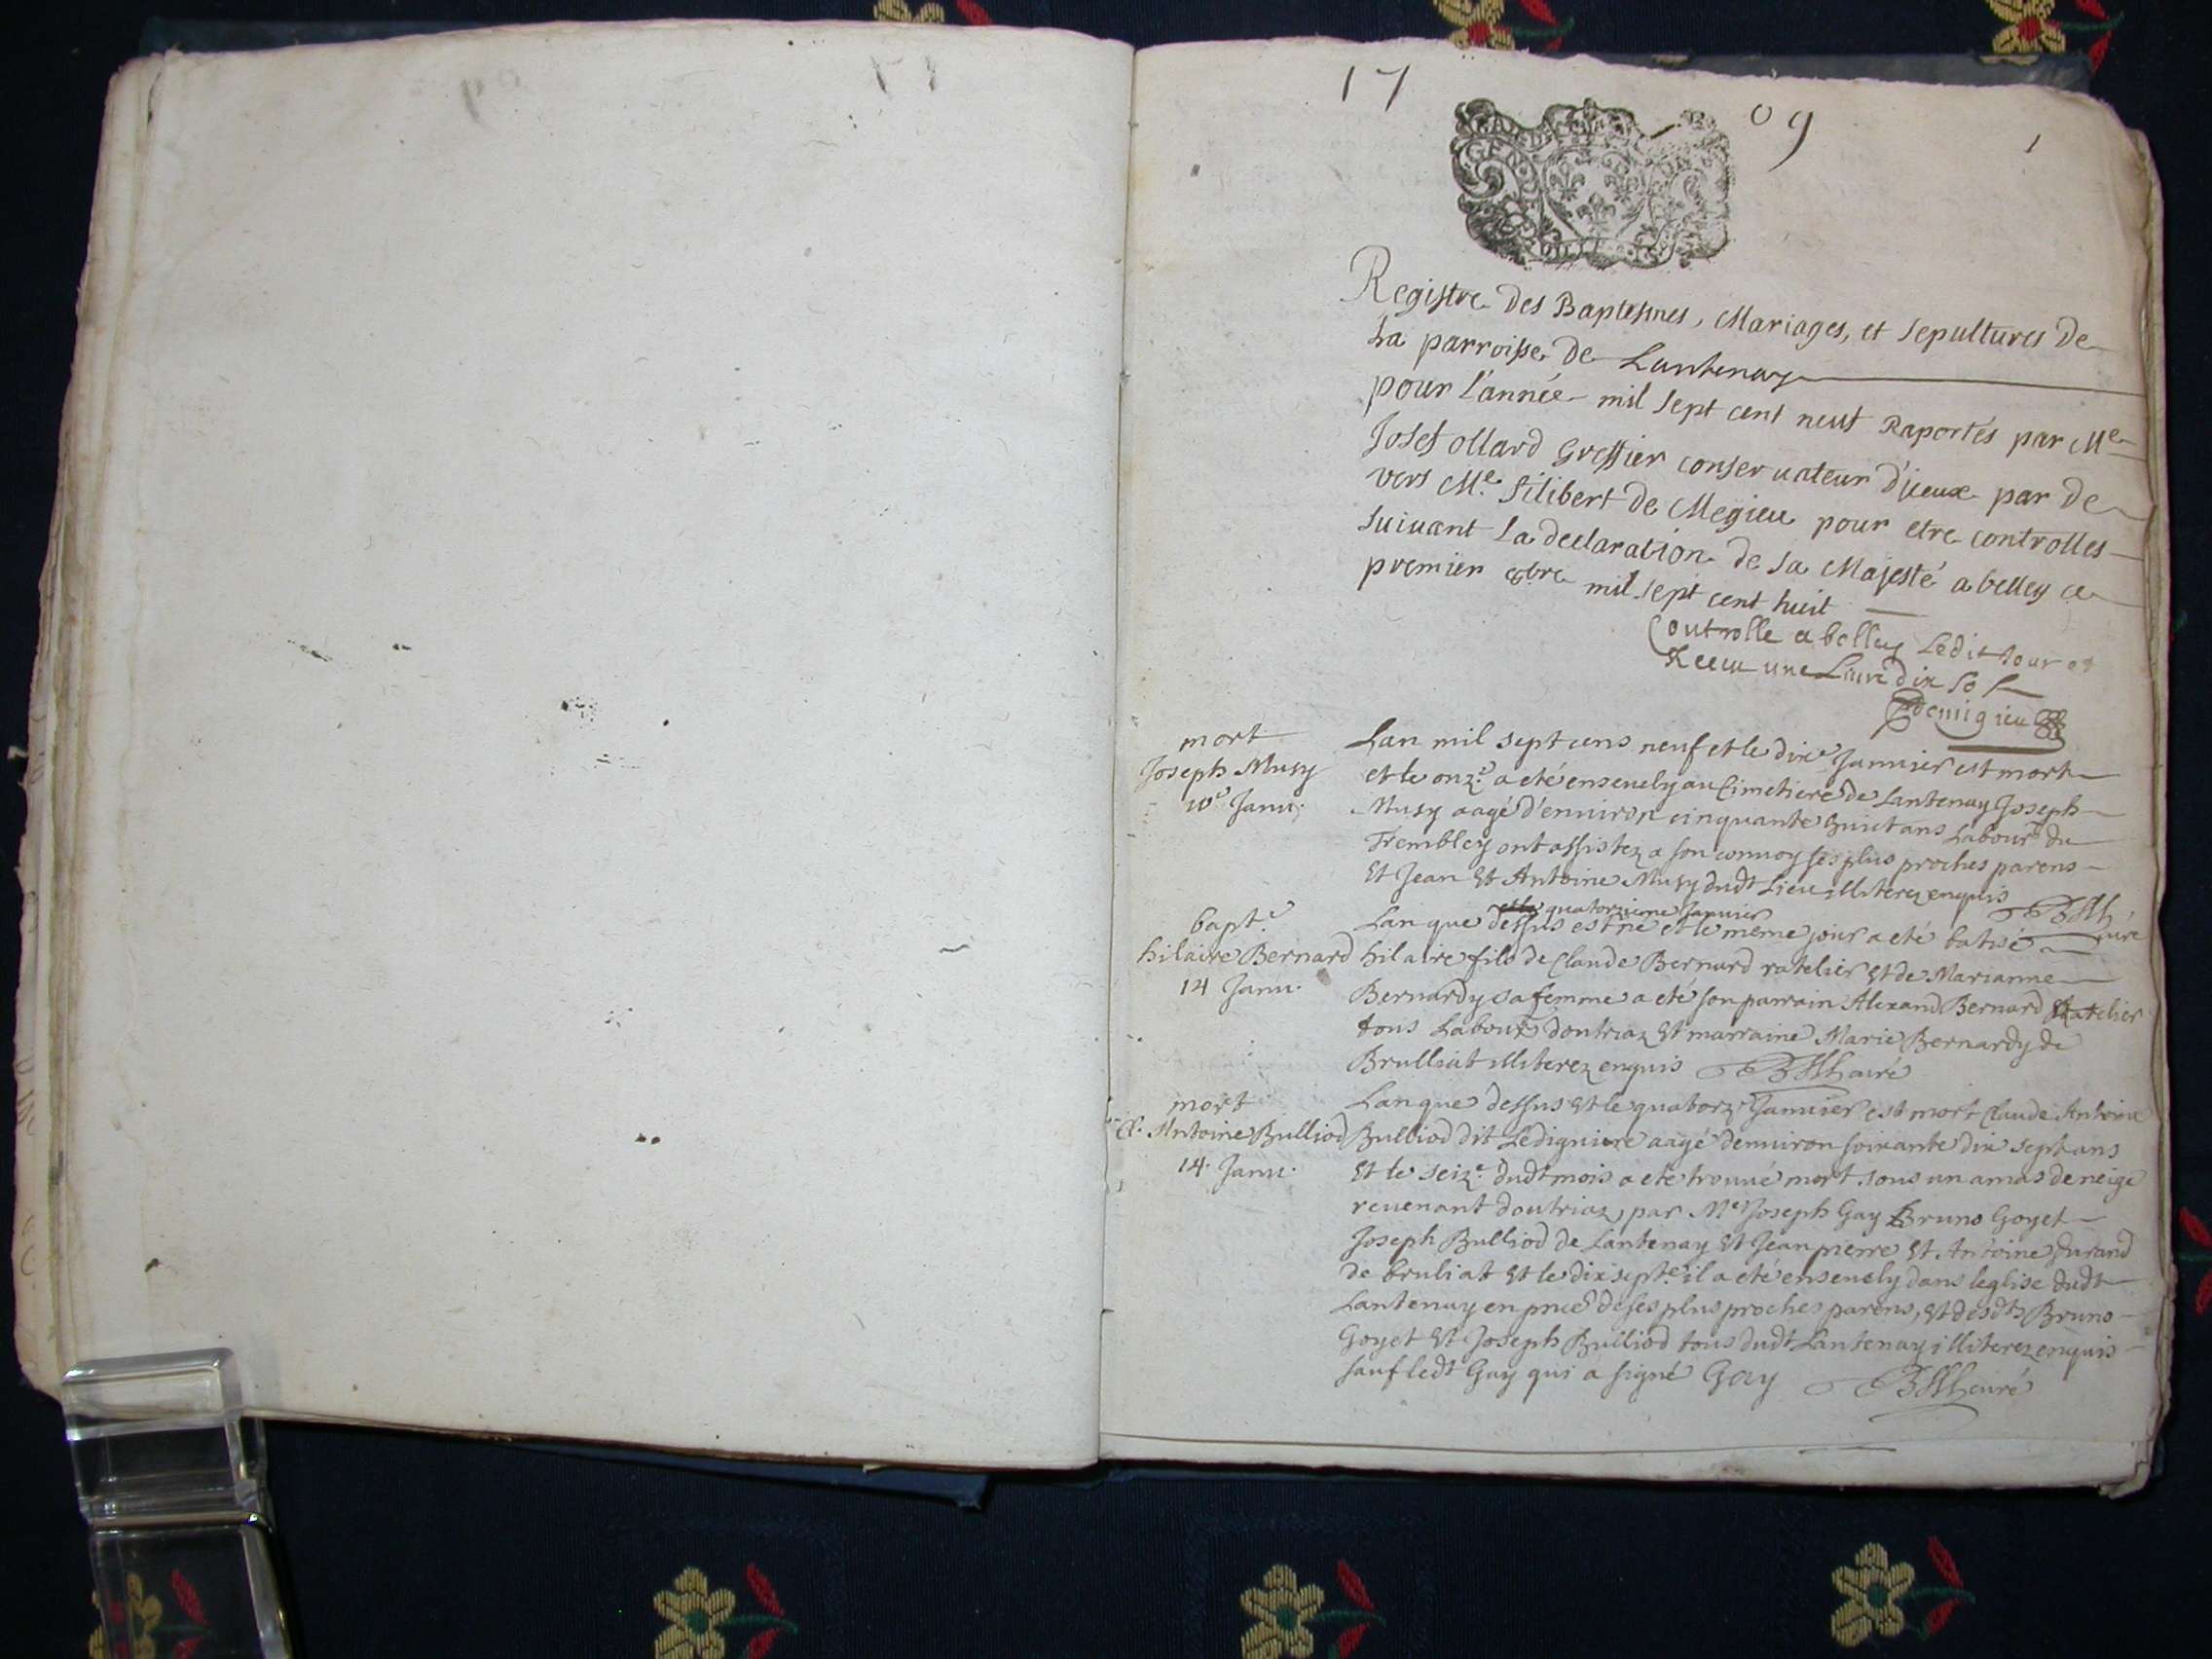 17 09
1
Registre des Baptesmes, Mariages, et sepultures De
La parroisse De Lantenay
pour l'année mil sept cent neuf Raportés par Me
Josef ollard Greffier conseruateur d'jceux par De
vers Me. filibert de Megieu pour etre controlles
suiuant la declaration de sa Majesté a belley ce
premier mil sept cent huit
Controlle a belley Ledit Jour et
Receu une Liure dix so
Demigieu
mort
Joseph Musy
10e Janu.
Lan mil sept cens neuf et le dixe Januier est mort
et le onze. a eté enseuely au Cimetiere de Lantenay Joseph
Musy aagé d'enuiron cinquante huict ans Labourr du
Trembley ont assistez a son conuoy ses plus proches parens
Et Jean Et Antoine Musy dudt Lieu illiterez enquis
curé
bapt.e
hilaire Bernard
14 Janu.
quatorzieme Januier
Lan que dessus est né et le meme jour a eté batisé
hilaire fils de Claude Bernard ratelier Et de Marianne
Bernardy sa femme a eté son parrain Alexand Bernard Ratelier
tous Labourr doutriaz Et marraine Marie Bernardy de
Brulliat illiterez enquis curé
mort
Cl. Antoine Bulliod
14. Janu.
Lan que dessus Et le quatorze Januier est mort Claude Antoine
Bulliod dit Lediguiere aagé denuiron soixante dix sept ans
Et le seize. dudt mois a eté trouué mort sous un amas de neige
reuenant doutriaz, par Me Joseph Gay Bruno Goyet
Joseph Bulliod de Lantenay Et Jean pierre Et Antoine durand
de bruliat Et le dix septe il a eté enseuely dans leglise dudt
Lantenay en pnce de ses plus proches parens, Et desdts Bruno
Goyet Et Joseph Bulliod tous dudt Lantenay illiterez enquis
sauf ledt Gay qui a signé Gay curé